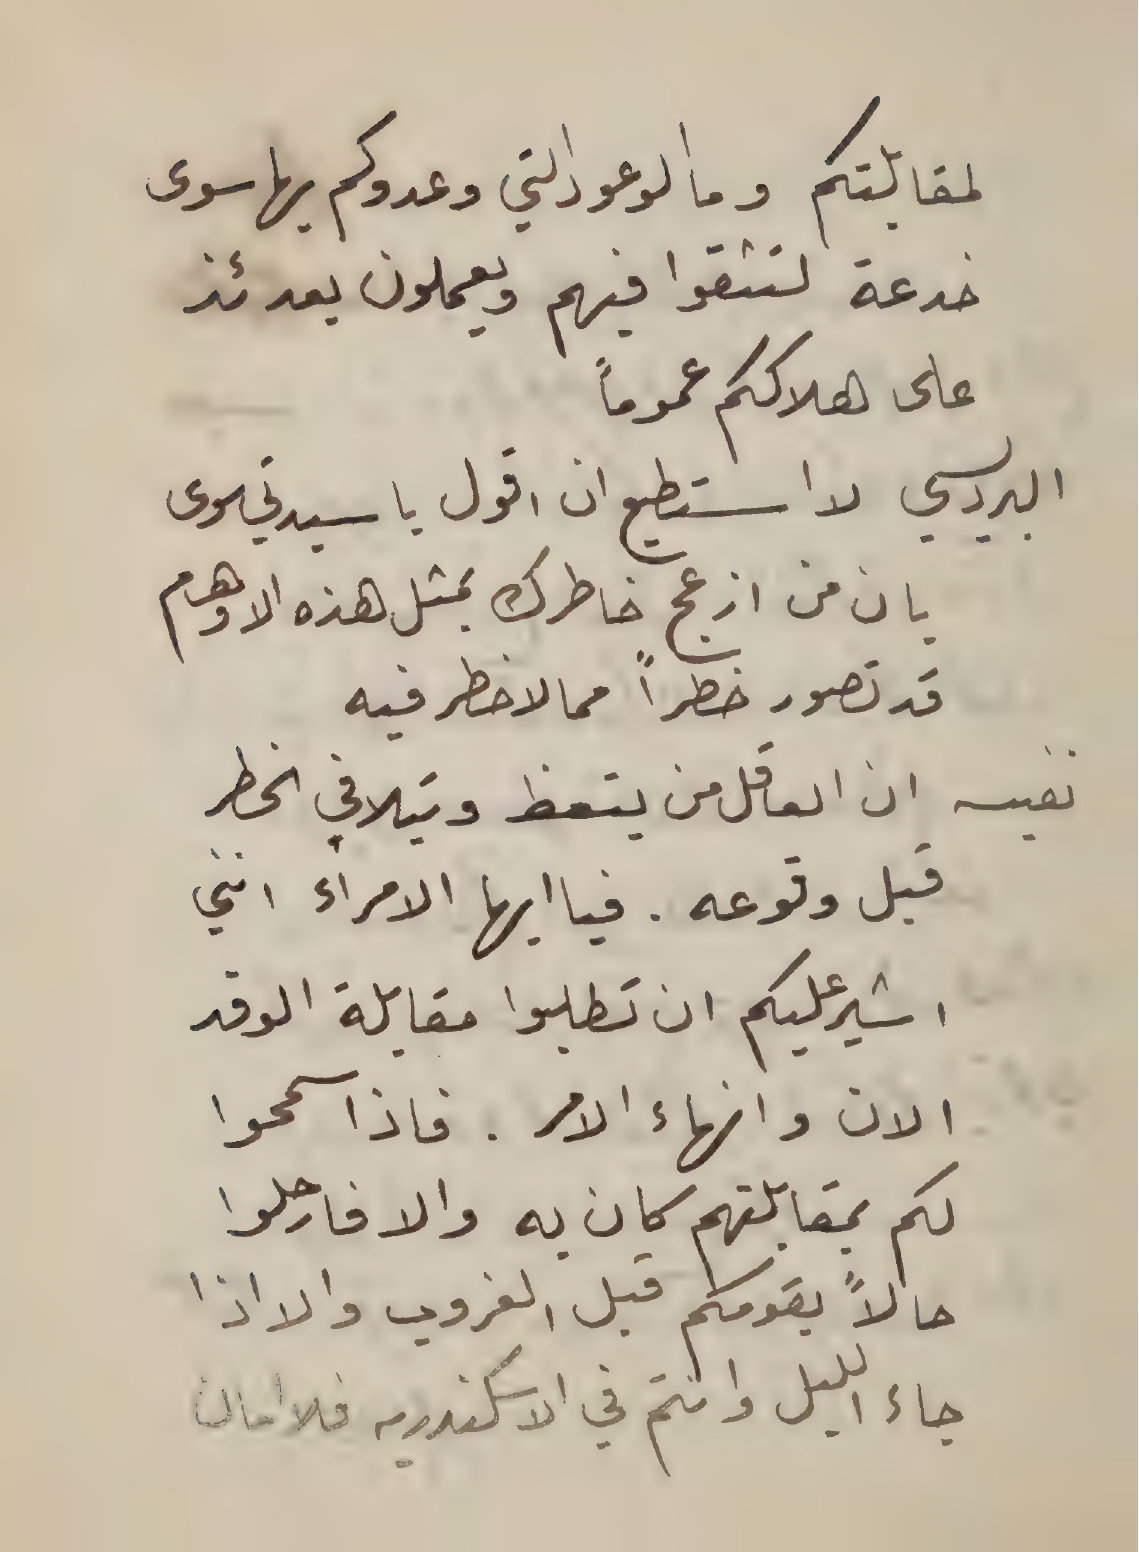 لمقابلتكم وما الوعود التي وعدوكم بها سوى
خدعة لتثقوا فيهم ويعملون بعدئذ
على هلاككم عموماً
البرديسي لا استطيع ان اقول يا سيدتي سوى
بان من ازعج خاطرك بمثل هذه الاوهام
قد تصور خطراً مما لا خطر فيه
نفيسه ان العاقل من يتعظ ويتلافى الخطر
قبل وقوعه . فيا ايها الامراء انني
اشير عليكم ان تطلبوا مقابلة الوفد
الان وانهاء الامر . فاذا سمحوا
لكم بمقابلتهم كان به والا فارحلوا
حالاً بقومكم قبل الغروب والا اذا
جاء الليل وانتم في الاسكندريه فلا امان